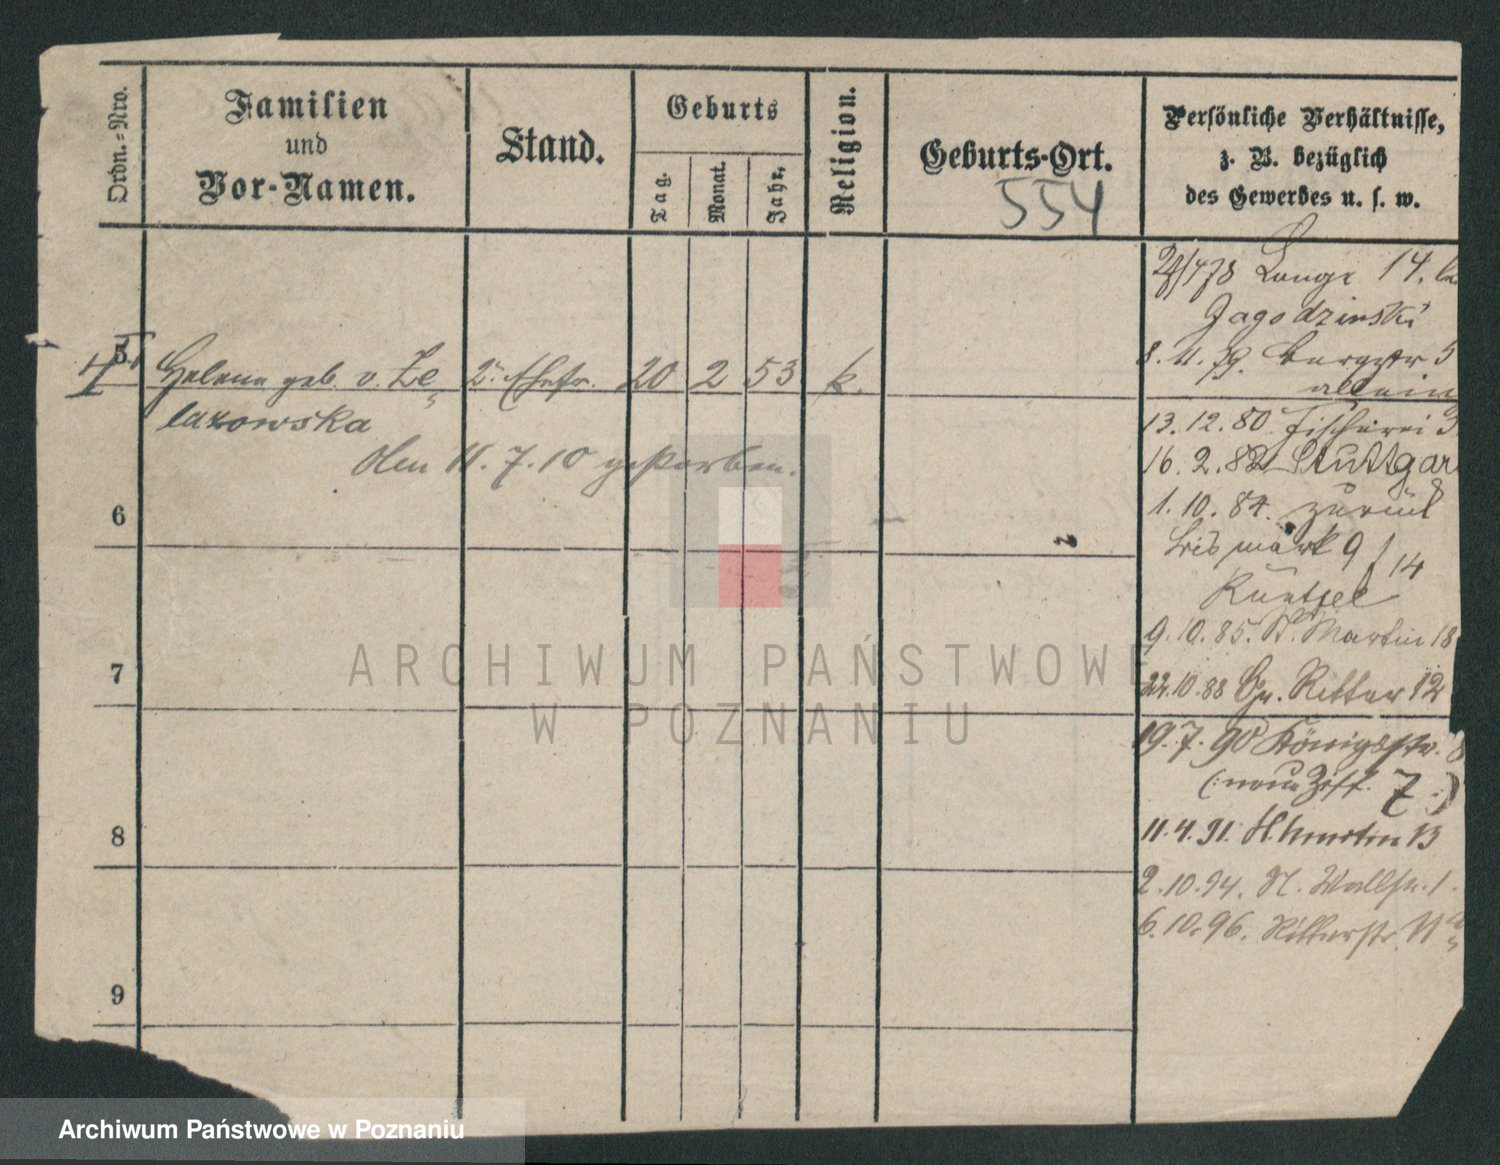 Ordn.-Nro.
Familien
und
Vor-Namen.
Stand.
Geburts
Tag.
Monat.
Jahr.
Religion.
Geburts-Ort.
554
Persönliche Verhältnisse,
z. B. bezüglich
des Gewerbes u. s. w.
Lange 14.
Jagodzinski
5
II Helene geb. v. Ze 2. Ehefr. 20 2 53 k.
lazowska
den 11. 7. 10 gestorben.
8. 11. 79. 5
allein
13. 12. 80. Fischerei 3
16. 2. 82 Stuttgar
6
1. 10. 84. zurück
Bismark 9
14
Küntzel
9. 10. 85. St. Martin 18
7
22. 10. 88 Gr. Ritter 12
19. 7. 90 Königsstr. 8
7 :)
8
11. 4. 91. St. Martin 13
2. 10. 94. N. Wallstr. 1.
6. 10. 96. Ritterstr. 11a
9
ARCHIWUM PAŃSTWOWE
W POZNANIU
Archiwum Państwowe w Poznaniu